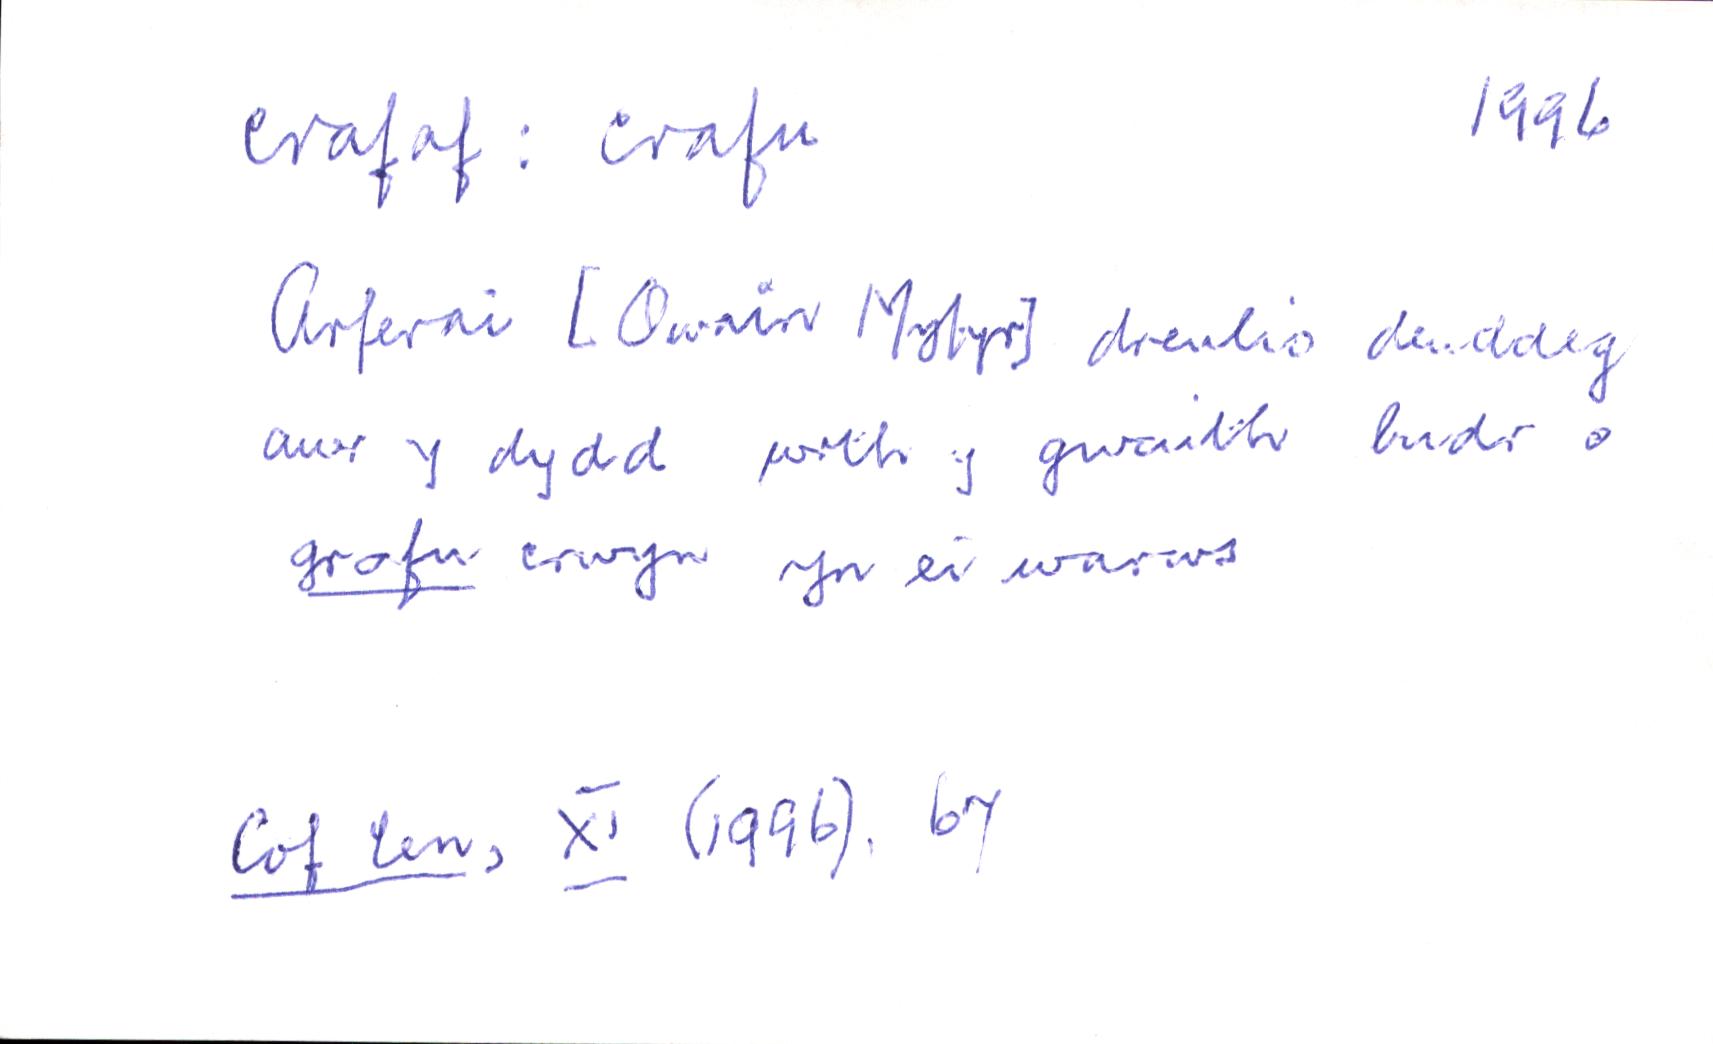 crafaf : crafu 1996
Arferai [Owain Myfyr] dreulio deuddeg
awr y dydd wrth y gwaith budr o
grafu crwyn yn ei warws
Cof Cen, XI (1996). 67